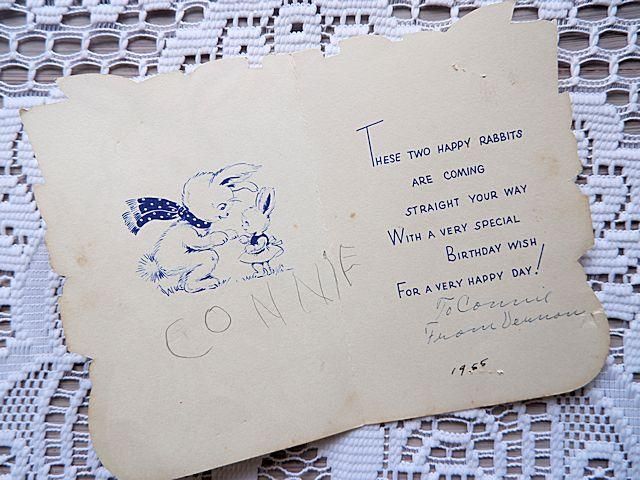 CONNIE
THESE TWO HAPPY RABBITS
ARE COMING
STRAIGHT YOUR WAY
WITH A VERY SPECIAL
BIRTHDAY WISH
FOR A VERY HAPPY DAY!
To Connie
From Vernon
1955